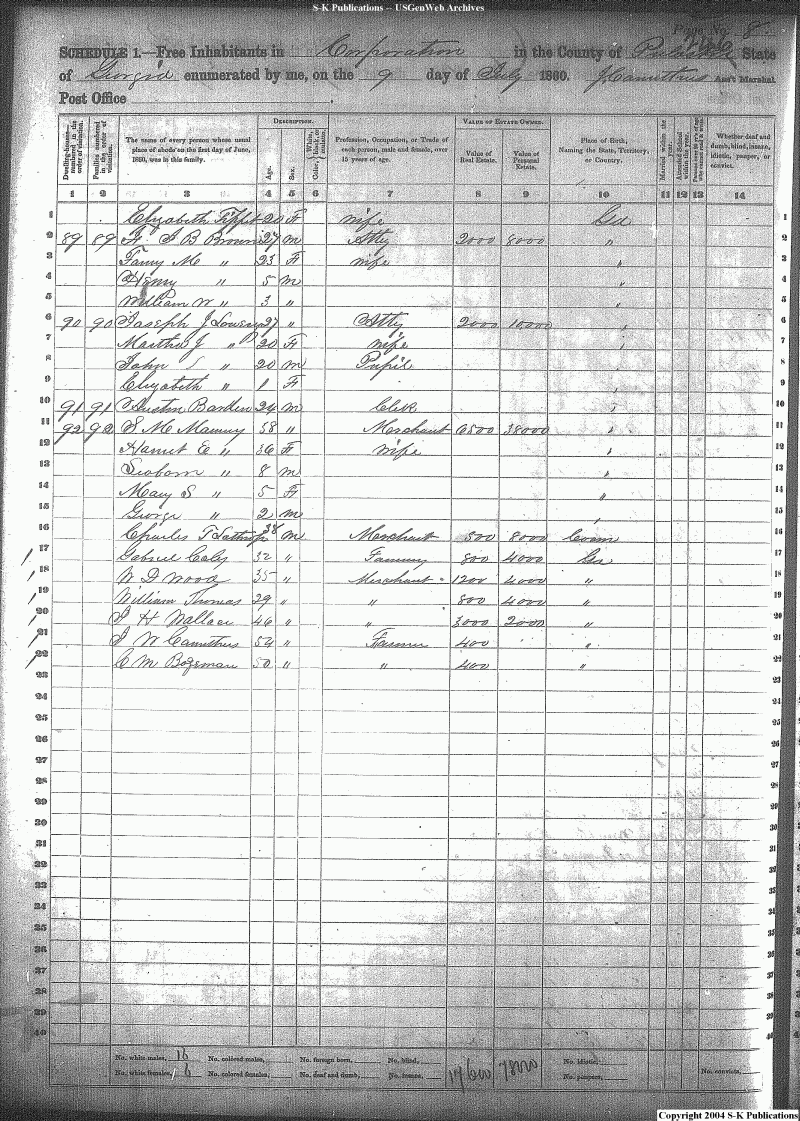 S-K Publications -- USGenWeb Archives
8
SCHEDULE 1.—Free Inhabitants in Corporation in the County of Pulaski State
of Georgia enumerated by me, on the 9 day of July 1860. J. Carruthers Ass't Marshal
Post Office
DESCRIPTION. VALUE OF ESTATE OWNED.
Dwelling-house—numbered in the order of visitation.
Families numbered in the order of visitation.
The name of every person whose usual place of abode on the first day of June, 1860, was in this family.
Age.
Sex.
Color, White, black, or mulatto.
Profession, Occupation, or Trade of each person, male and female, over 15 years of age.
Value of Real Estate.
Value of Personal Estate.
Place of Birth, Naming the State, Territory, or Country.
Married within the year.
Attended School within the year.
Whether deaf and dumb, blind, insane, idiotic, pauper, or convict.
1 2 3 4 5 6 7 8 9 10 11 12 13 14
1 Elizabeth Tippit 20 F wife Geo 1
2 89 89 F S B Brown 27 m Atty 2000 8000 " 2
3 Fanny M " 23 F wife " 3
4 Henry " 5 m " 4
5 William W " 3 " " 5
6 90 90 Joseph J Lowery 27 " Atty 2000 10,000 " 6
7 Martha J " 20 F wife " 7
8 John S " 20 m Pupil " 8
9 Elizabeth " 1 F " 9
10 91 91 Austin Barden 24 m Clerk " 10
11 92 92 S M Manny 38 " Merchant 6500 38000 " 11
12 Harriet E " 36 F wife " 12
13 Seaborn " 8 m " 13
14 Mary S " 5 F " 14
15 George " 2 m " 15
16 Charles T Lathrop 38 m Merchant 800 8000 Conn 16
17 Gabriel Coley 32 " 800 4000 Geo 17
18 W D Wood 35 " Merchant 1200 4000 " 18
19 William Thomas 29 " " 800 4000 " 19
20 J H Wallace 46 " " 3000 2000 " 20
21 J W Carruthers 54 " Farmer 400 " 21
22 C M Bozeman 50 " " 400 " 22
23
24
25
26
27
28
29
30
31
32
33
34
35
36
37
38
39
40
No. white males, 16 No. colored males, No. foreign born, No. blind, No. idiotic,
No. white females, 6 No. colored females, No. deaf and dumb, No. insane, No. paupers, No. convicts,
78000
Copyright 2004 S-K Publications